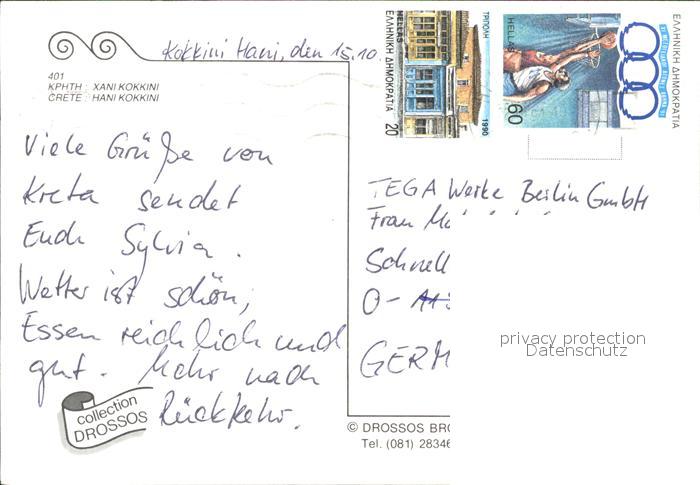 Kokkini Hani, den 15.10.
401
ΚΡΗΤΗ : ΧΑΝΙ ΚΟΚΚΙΝΙ
CRETE : HANI KOKKINI
Viele Grüße von
Kreta sendet
Euch Sylvia.
Wetter ist schön,
Essen reichlich und
gut. Mehr nach
Rückkehr.
collection
DROSSOS
ΤΡΙΠΟΛΗ
1990
HELLAS
ΕΛΛΗΝΙΚΗ ΔΗΜΟΚΡΑΤΙΑ
20
HELLAS
60
ΕΛΛΗΝΙΚΗ ΔΗΜΟΚΡΑΤΙΑ
TEGA Werke Berlin GmbH
Frau
Schnell
O-
GERM
privacy protection
Datenschutz
© DROSSOS BRO
Tel. (081) 28346